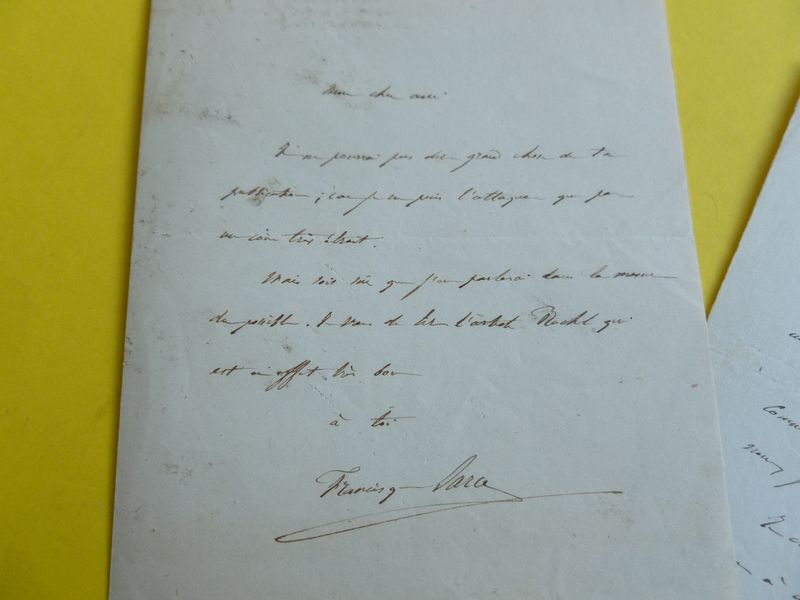 Mon cher ami
Je ne pourrai pas dire grand chose de ta
publication ; car je ne puis l'attaquer que par
un coin très étroit.
Mais sois sûr que j'en parlerai dans la mesure
du possible. Je viens de lire l'article Rachel qui
est en effet très bon
à toi
Francisque Sarcey